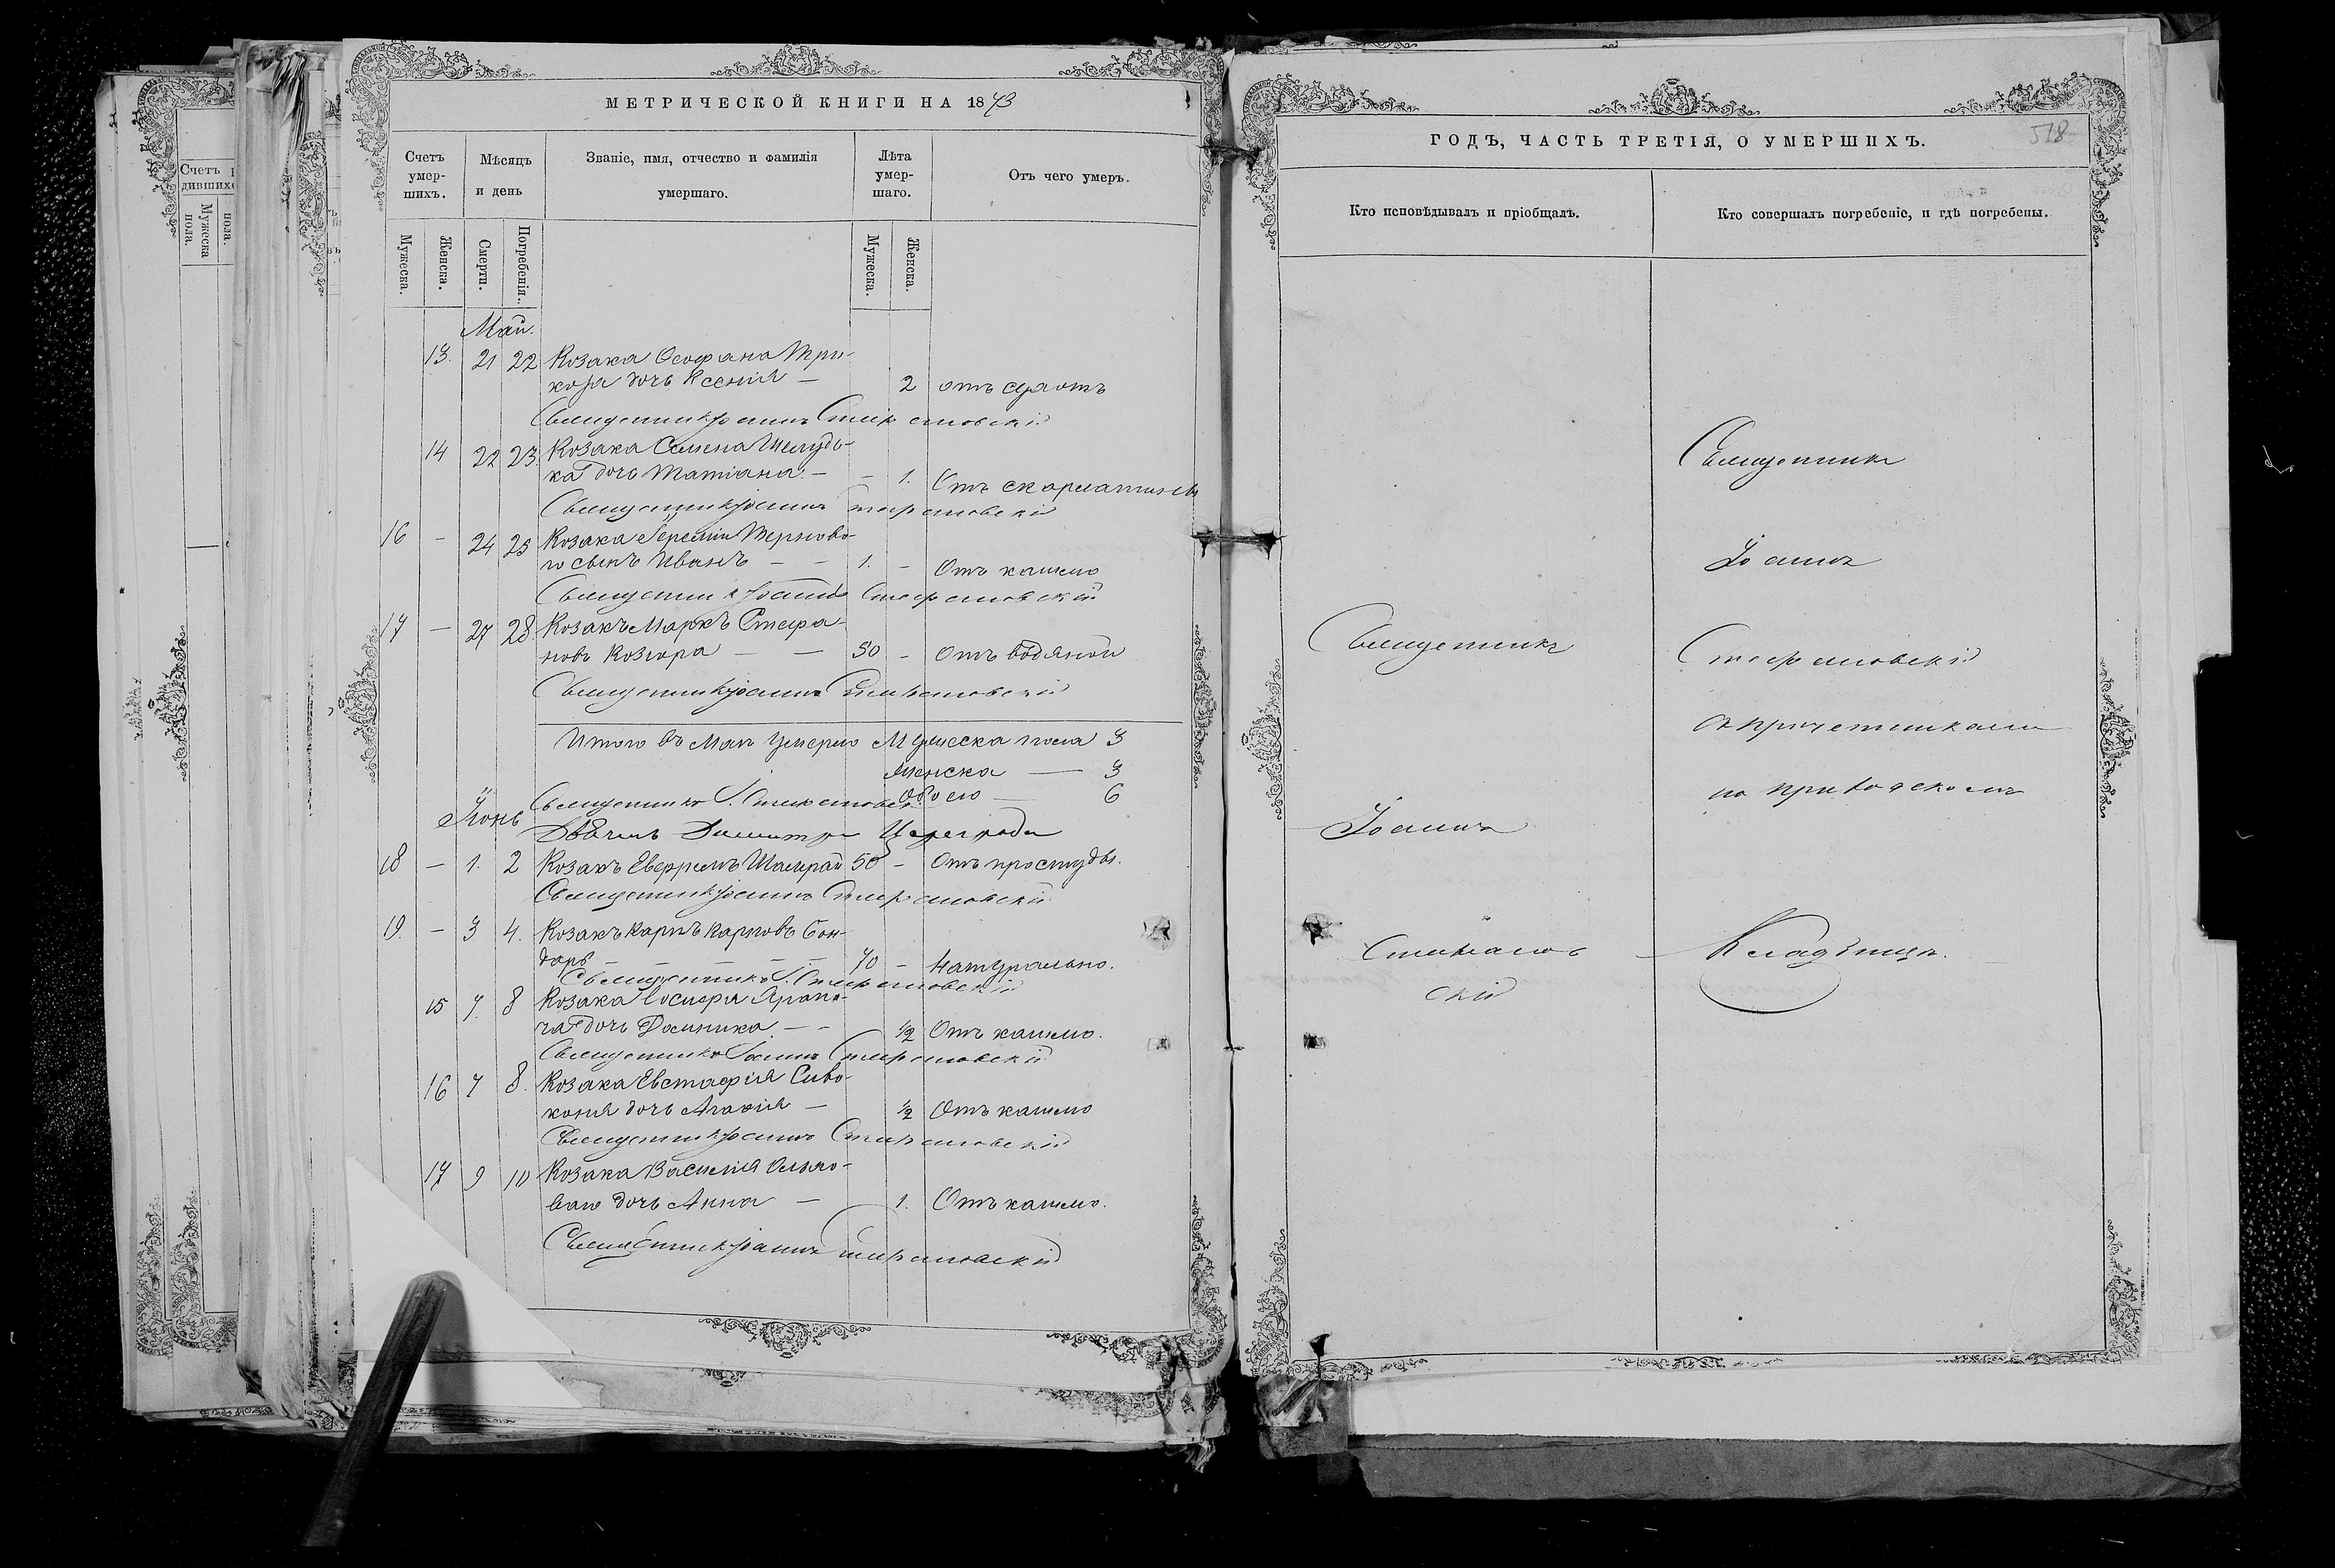 МЕТРИЧЕСКОЙ КНИГИ НА 1873
Счетъ умер-шихъ.
Мѣсяцъ и день
Званіе, имя, отчество и фамилія умершаго.
Лѣта умер-шаго.
Отъ чего умеръ.
Мужеска.
Женска.
Смерти.
Погребенія.
Мужеска.
Женска.
Май.
13. 21 22 Козака Феофана
дочь Ксенія — 2 отъ
Священникъ Іоаннъ Стефановскій
14 22 23. Козака Семена Шелудь-
ка дочь Татіана — - 1. Отъ скарлатины
Священникъ Іоаннъ Стефановскій
16 - 24 25 Козака Іереміи Терново-
го сынъ Иванъ — - 1. - Отъ кашлю
Священникъ Іоаннъ Стефановскій
17 — 27 28. Козакъ Маркъ Стефа-
новъ Козюра — — 50 - Отъ водяной
Священникъ Іоаннъ Стефановскій
Итого въ Маѣ умерло Мужеска пола 3
Женска — 3
Обоего — 6
Священникъ І. Стефановскій
Іюнь
Димитрій
18 — 1. 2 Козакъ Евфремъ Шамрай 50 - Отъ простуды.
Священникъ Іоаннъ Стефановскій
19. — 3 4. Козакъ Карпъ Карповъ Бон-
дарь — — — — 70 - Натурально.
Священникъ І. Стефановскій
15 7. 8 Козака Іосифа
дочь Домника — - 1/2 Отъ кашлю.
Священникъ Іоаннъ Стефановскій
16 7 8. Козака Евстафія Сиво-
коня дочь Агафія — 1/2 Отъ кашлю
Священникъ Іоаннъ Стефановскій
17 9 10 Козака Василія
ваго дочь Анна — 1. Отъ кашлю.
Священникъ Іоаннъ Стефановскій
ГОДЪ, ЧАСТЬ ТРЕТІЯ, О УМЕРШИХЪ.
518
Кто исповѣдывалъ и пріобщалъ.
Кто совершалъ погребеніе, и гдѣ погребены.
Священникъ
Іоаннъ
Стефанов
скій
Священникъ
Іоаннъ
Стефановскій
съ причетниками
на приходскомъ
Кладбищѣ.
Счетъ
дившихс
Мужеска пола.
пола.